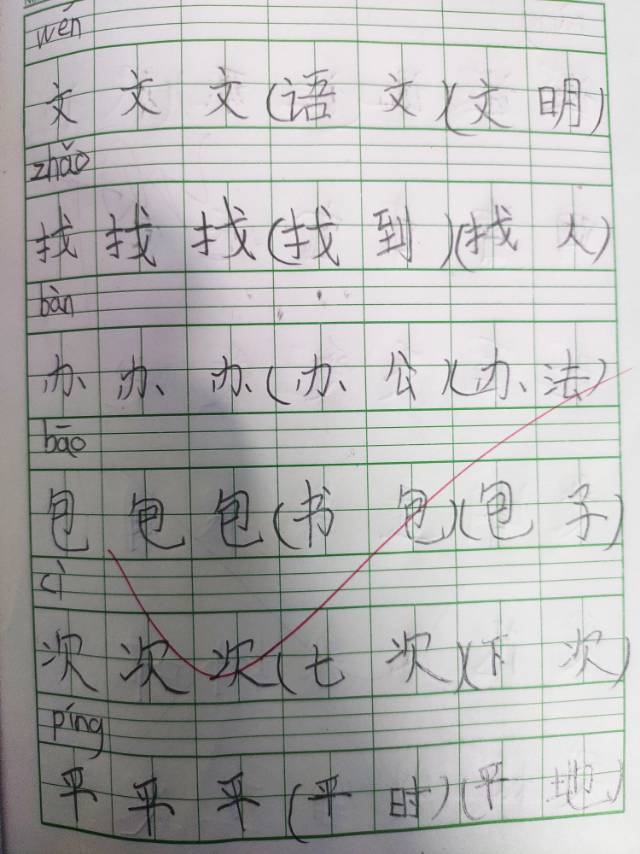 wén
文 文 文(语 文)(文 明)
zhǎo
找 找 找(找 到)(找 人)
bàn
办 办 办(办 公)(办 法)
bāo
包 包 包(书 包)(包 子)
cì
次 次 次(七 次)(下 次)
píng
平 平 平(平 时)(平 地)